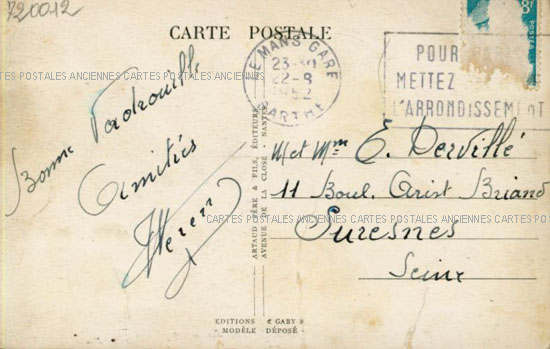 720012
CARTE POSTALE
LE MANS GARE
23-30
22-8
SARTHE
POUR
METTEZ
L'ARRONDISSEMENT
8F
POSTES
CARTES POSTALES ANCIENNES CARTES POSTALES ANCIENNES CARTES POSTALES ANCIENNES CARTES POSTALES
Bonne Vadrouille
Amitiés
ARTAUD PÈRE & FILS, ÉDITEURS
AVENUE DE LA CLOSE - NANTES
M et Mme E. Dervillé
11 Boul. Arist Briand
CARTES POSTALES ANCIENNES CARTES POSTALES ANCIENNES CARTES POSTALES
Suresnes
Seine
EDITIONS « GABY »
- MODÈLE DÉPOSÉ -